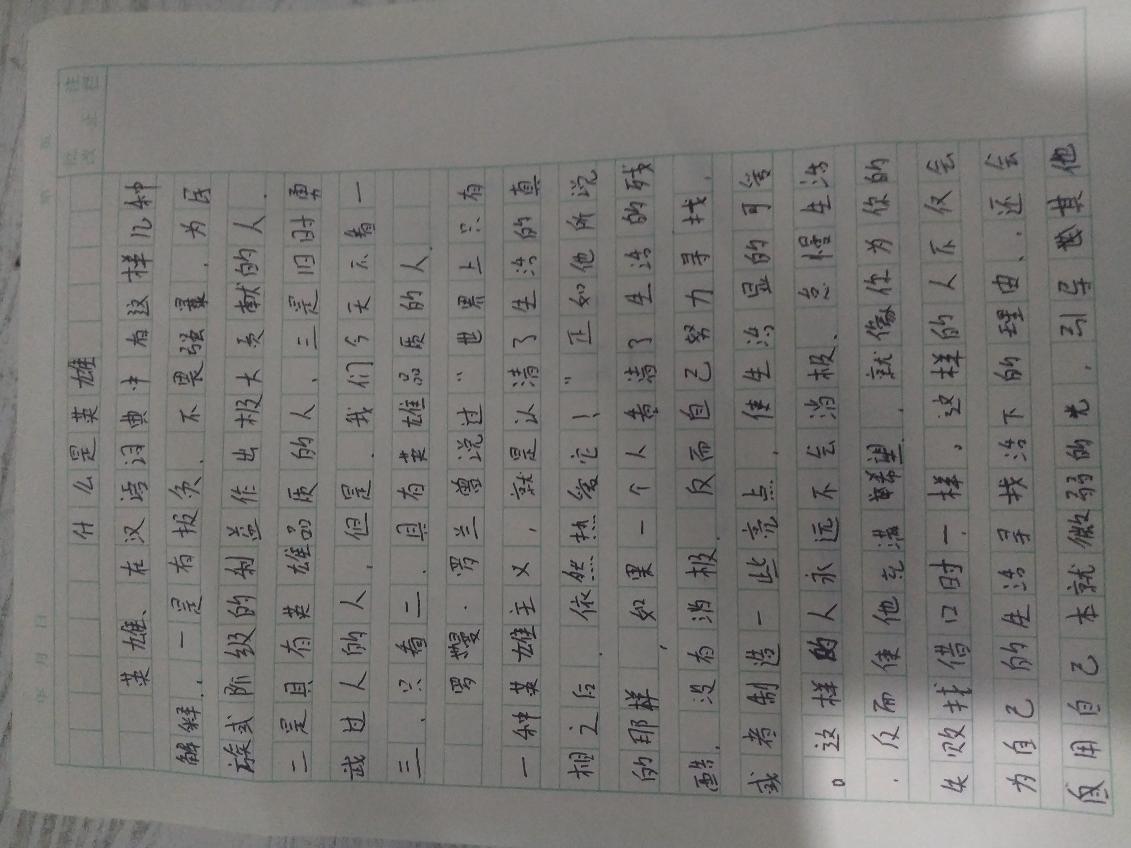 什么是英雄
英雄、在汉语词典中有这样几种
解释、一是有抱负、不畏强暴、为民
族或阶级的利益作出极大贡献的人、
二是具有英雄品质的人、三是旧时勇
武过人的人、但是、我们今天不看一
三、只看二、具有英雄品质的人
罗曼·罗兰曾说过“世界上只有
一种英雄主义，就是认清了生活的真
相之后、依然热爱它！”正如他所说
的那样，如果一个人看清了生活的残
酷、没有消极、反而自己努力寻找、
或者制造一些亮点、使生活显的可爱
。这样的人永远不会消极、怠慢生活
、反而使他充满希望、就像你为你的
失败找借口时一样，这样的人不仅会
为自己的生活寻找活下的理由、还会
用自己本就微弱的光，引导其他
年 月 日